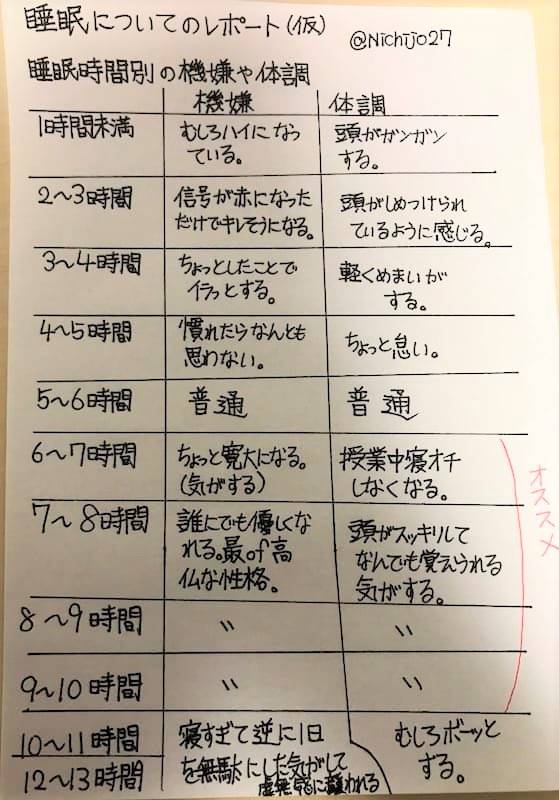 睡眠についてのレポート(仮)
@Nichijo27
睡眠時間別の機嫌や体調
機嫌 体調
1時間未満 むしろハイになっ 頭がガンガン
ている。 する。
2〜3時間 信号が赤になった 頭がしめつけられ
だけでキレそうになる。 ているように感じる。
3〜4時間 ちょっとしたことで 軽くめまいが
イラっとする。 する。
4〜5時間 慣れたらなんとも ちょっと怠い。
思わない。
5〜6時間 普通 普通
6〜7時間 ちょっと寛大になる。 授業中寝オチ
(気がする) しなくなる。
7〜8時間 誰にでも優しくな 頭がスッキリして
れる。最of高 なんでも覚えられる
仏な性格。 気がする。
8〜9時間 〃 〃
9〜10時間 〃 〃
オススメ
10〜11時間 寝すぎて逆に1日 むしろボーッと
12〜13時間 を無駄にした気がして する。
虚無感に襲われる